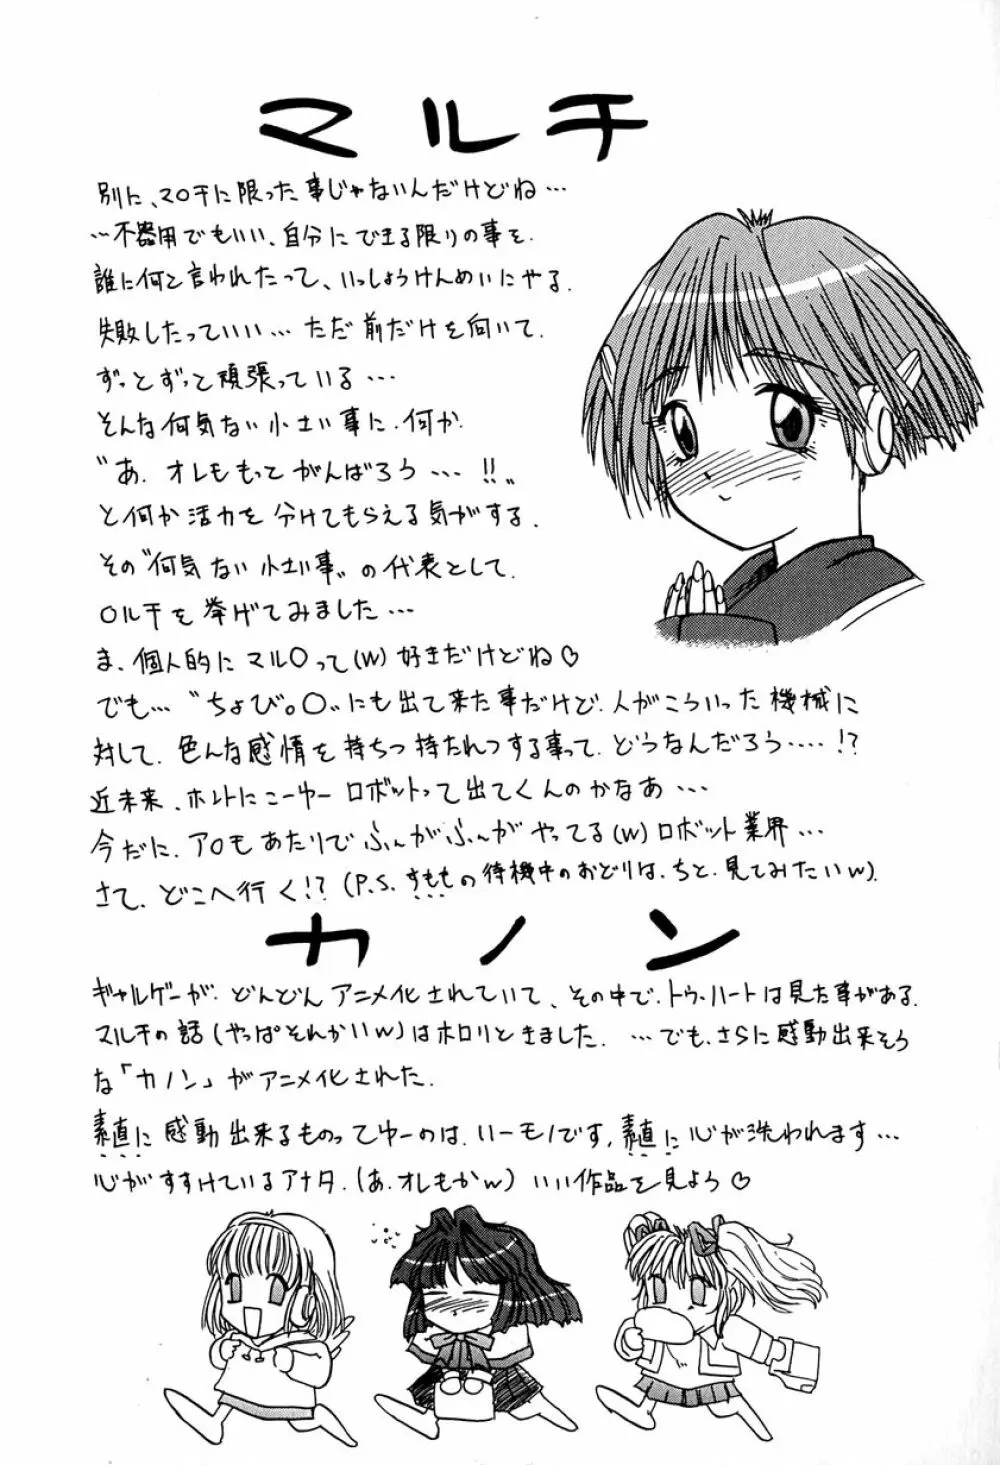 マルチ
別に、マ○チに限った事じゃないんだけどね…
…不器用でもいい、自分にできる限りの事を.
誰に何と言われたって、いっしょうけんめいにやる.
失敗したっていい…ただ前だけを向いて.
ずっとずっと頑張っている…
そんな何気ない小さい事に.何か.
"あ.オレももってがんばろう…!!"
と何か活力を分けてもらえる気がする.
その"何気ない小さい事"の代表として.
○ルチを挙げてみました…
ま、個人的にマル○って(w)好きだけどね♡
でも…"ちょび。○"にも出て来た事だけど.人がこういった機械に
対して.色んな感情を持ちつ持たれつする事って.どうなんだろう….!?
近未来、ホントにこーゆーロボットって出てくんのかなあ…
今だに.ア○もあたりでふんがふんがやってる(w)ロボット業界…
さて.どこへ行く!?(P.S.すももの待機中のおどりは、ちと.見てみたいw).
カノン
ギャルゲーが.どんどんアニメ化されていて、その中で.トゥ・ハートは見た事がある.
マルチの話(やっぱそれかいw)はホロリときました.…でも、さらに感動出来そう
な「カノン」がアニメ化された.
素直に感動出来るものってゆーのは、いーモノです,素直に心が洗われます…
心がすすけているアナタ.(あ.オレもかw)いい作品を見よう♡